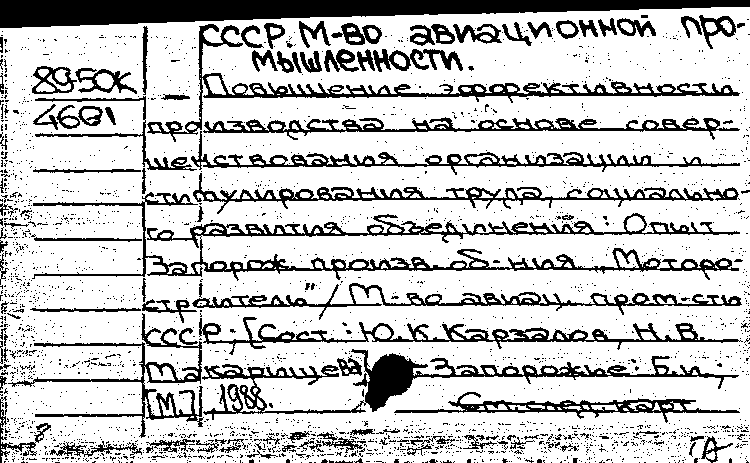 СССР. М-во авиационной про-
мышленности.
8950К
Повышение эффективности
4601
производства на основе совер-
шенствования организации и
стимулирования труда, социально-
го развития объединения: Опыт
Запорож. произв. об-ния „Моторо-
строитель" / М-во авиац. пром-сти
СССР; [Сост.: Ю.К. Карзалов, Н.В.
Макаришева] – Запорожье: Б.и.;
[М.], 1988.
См. след. карт.
ГА